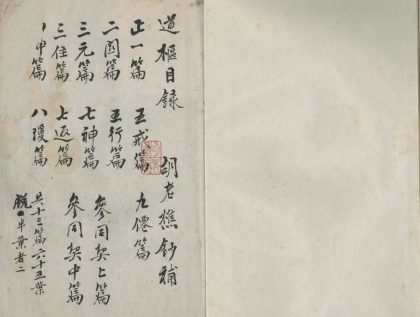 道樞目錄 胡老樵鈔補
正一篇 五戒篇 九僊篇
二関篇 五行篇 參同契上篇
三元篇 七神篇 參同契中篇
三住篇 七返篇
篇 八瓊篇
共十三篇六十五葉
脫半葉者二